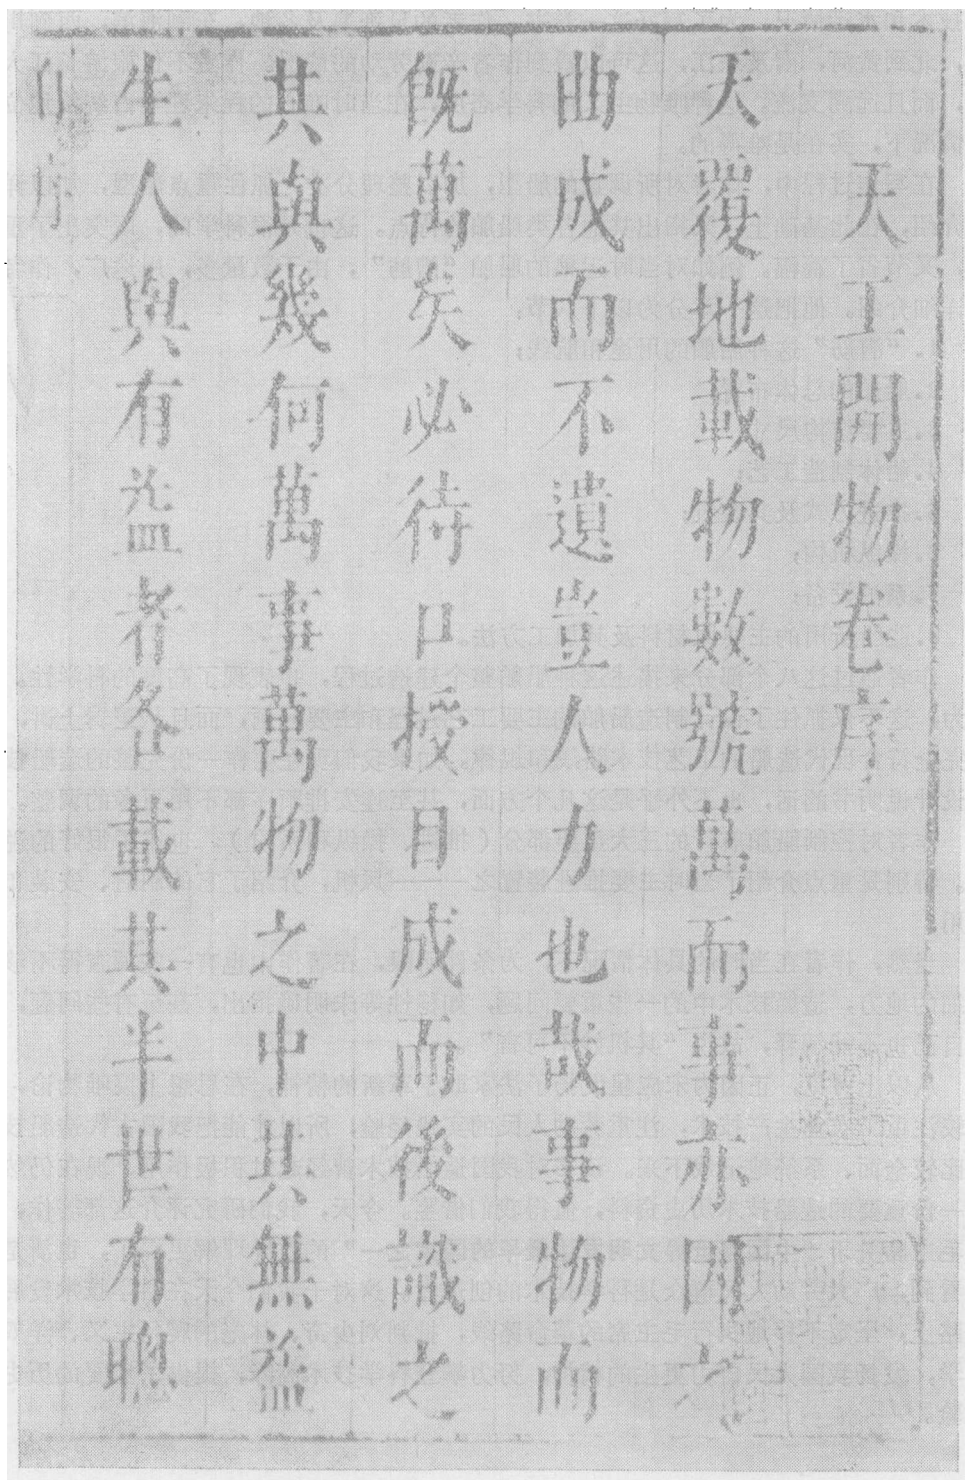 天工開物卷序
天覆地載物數號萬而事亦因之
曲成而不遺豈人力也哉事物而
旣萬矣必待口授目成而後識之
其與幾何萬事萬物之中其無益
生人與有益者各載其半世有聰
序